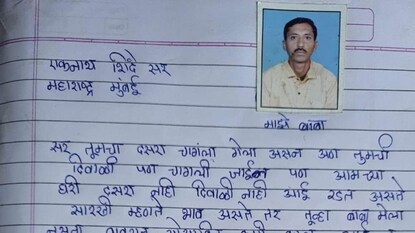 एकनाथ शिंदे सर
महाराष्ट्र मुंबई
माझे बाबा
सर तूमचा दसरा चागंला गेला असन अण तूमची
दिवाळी पण चागली जाईन पण आमच्या
घरी दसरा नाही दिवाळी नाही आई रडत असते
सारखी म्हणते भाव असते तर तूव्हा बाबू मेला
नसता